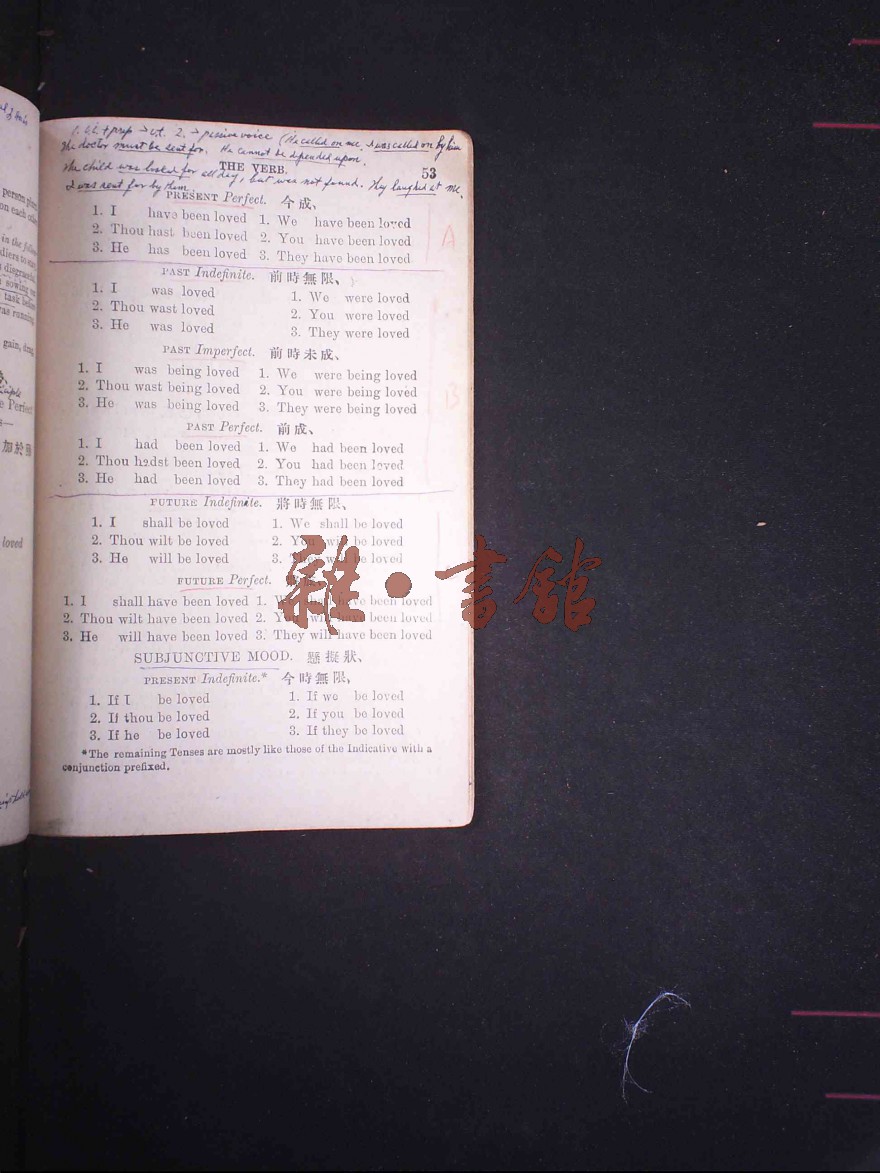 1. v.i. + prep → v.t. 2. → passive voice (He called on me. I was called on by him
The doctor must be sent for. He cannot be depended upon.
The child was looked for all day, but was not found. They laughed at me.
I was sent for by them.
THE VERB. 53
PRESENT Perfect. 今成、
1. I have been loved 1. We have been loved
2. Thou hast been loved 2. You have been loved
3. He has been loved 3. They have been loved
A
PAST Indefinite. 前時無限、
1. I was loved 1. We were loved
2. Thou wast loved 2. You were loved
3. He was loved 3. They were loved
PAST Imperfect. 前時未成、
1. I was being loved 1. We were being loved
2. Thou wast being loved 2. You were being loved
3. He was being loved 3. They were being loved
B
PAST Perfect. 前成、
1. I had been loved 1. We had been loved
2. Thou hadst been loved 2. You had been loved
3. He had been loved 3. They had been loved
FUTURE Indefinite. 將時無限、
1. I shall be loved 1. We shall be loved
2. Thou wilt be loved 2. You will be loved
3. He will be loved 3. They will be loved
FUTURE Perfect.
1. I shall have been loved 1. We shall have been loved
2. Thou wilt have been loved 2. You will have been loved
3. He will have been loved 3. They will have been loved
SUBJUNCTIVE MOOD. 懸擬狀、
PRESENT Indefinite.* 今時無限,
1. If I be loved 1. If we be loved
2. If thou be loved 2. If you be loved
3. If he be loved 3. If they be loved
*The remaining Tenses are mostly like those of the Indicative with a
conjunction prefixed.
雜·書館
person
on each
in the
diers to
disgraceful
sowing
task before
as running
gain, drag,
e Perfect
加於
loved